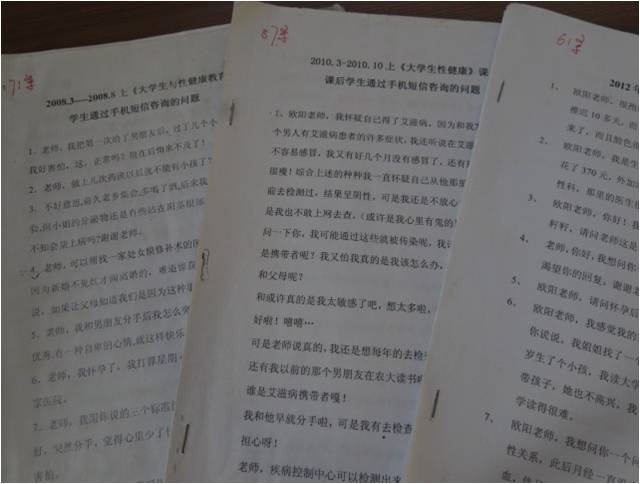 71条
2008.3----2008.8 上《大学生与性健康教育
学生通过手机短信咨询的问题
1．老师，我把第一次给了男朋友后，过了几个小
我好害怕，这，正常吗？现在后悔来不及了！
2．老师，做上几次药流以后就不能有小孩了？
3．不好意思，前久老乡集会，多喝了酒，后来我
会，但小姐的分泌物还是有些沾在阴茎根部
不知会染上病吗？谢谢老师。
4．老师，可以用找一家处女膜修补术的医
因为新婚不见红才闹离婚的，难道您在
说，如果让父母知道我们是因为这种事
5．老师，我和男朋友分手后我怎么突
优秀，有一种自卑的心情，就这样快乐
6．老师，我怀孕了，我打算星期
家医院。
7．老师，我用你说的三个标准
好，突然分手，觉得心里少了什
害怕。
67条
2010.3-2010.10 上《大学生性健康》课
课后学生通过手机短信咨询的问题
1、欧阳老师，我怀疑自己得了艾滋病，因为和我
个男人有艾滋病患者的许多症状，我还听说在艾滋
不容易感冒，我又有好几个月没有感冒了，还有
很嘎！综合上述的种种我一直怀疑自己从他那里
前去检测过，结果呈阴性，可是我还是不放心
是我也不敢上网去查，（或许是我心里有鬼的
问一下你，我可能通过这些就被传染呢，我
是携带者呢？我又怕我真的是我该怎么办，
和父母呢？
和或许真的是我太敏感了吧，想太多啦，
好啦！嘻嘻…
可是老师说真的，我还是想每年的去检
还有我以前的那个男朋友在农大读书
谁是艾滋病携带者嘎！
我和他早就分手啦，可是我有去检查
担心呀！
老师，疾病控制中心可以检测出来
61条
2012年
1、欧阳老师，很
推迟 10 多天，而
来了，而且颜色很
2、欧阳老师，我是
花了 370 元，外加
性科，那里的医生
3、欧阳老师，你好！我
籽籽，请问老师这是
4、老师，你好，我想问你
渴望你的回复，谢谢老
5、欧阳老师，请问怀孕后
6、欧阳老师，我感觉我的
你说说，我姐姐找了一个
岁生了个小孩，我读大
带孩子，她也不高兴，我
学读得很难。
7、欧阳老师，我想问你一个问
性关系，此后月经一直
血，